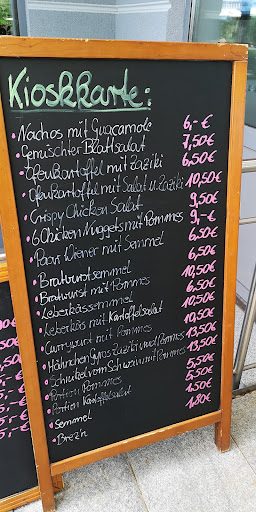 Kioskkarte:
• Nachos mit Guacamole 6,- €
• Gemischter Blattsalat 7,50€
• Ofenkartoffel mit Zaziki 6,50€
• Ofenkartoffel mit Salat u. Zaziki 10,50€
• Crispy Chicken Salat 9,50€
• 6 Chicken Nuggets mit Pommes 9,-€
• Paar Wiener mit Semmel 6,50€
• Bratwurstsemmel 6,50€
• Bratwurst mit Pommes 10,50€
• Leberkässemmel 6,50€
• Leberkäs mit Kartoffelsalat 10,50€
• Currywurst mit Pommes 10,50€
• Hähnchen Gyros Zaziki und Pommes 13,50€
• Schnitzel vom Schwein mit Pommes 13,50€
• Portion Pommes 5,50€
• Portion Kartoffelsalat 5,50€
• Semmel 1.50€
• Brez'n 1.80€